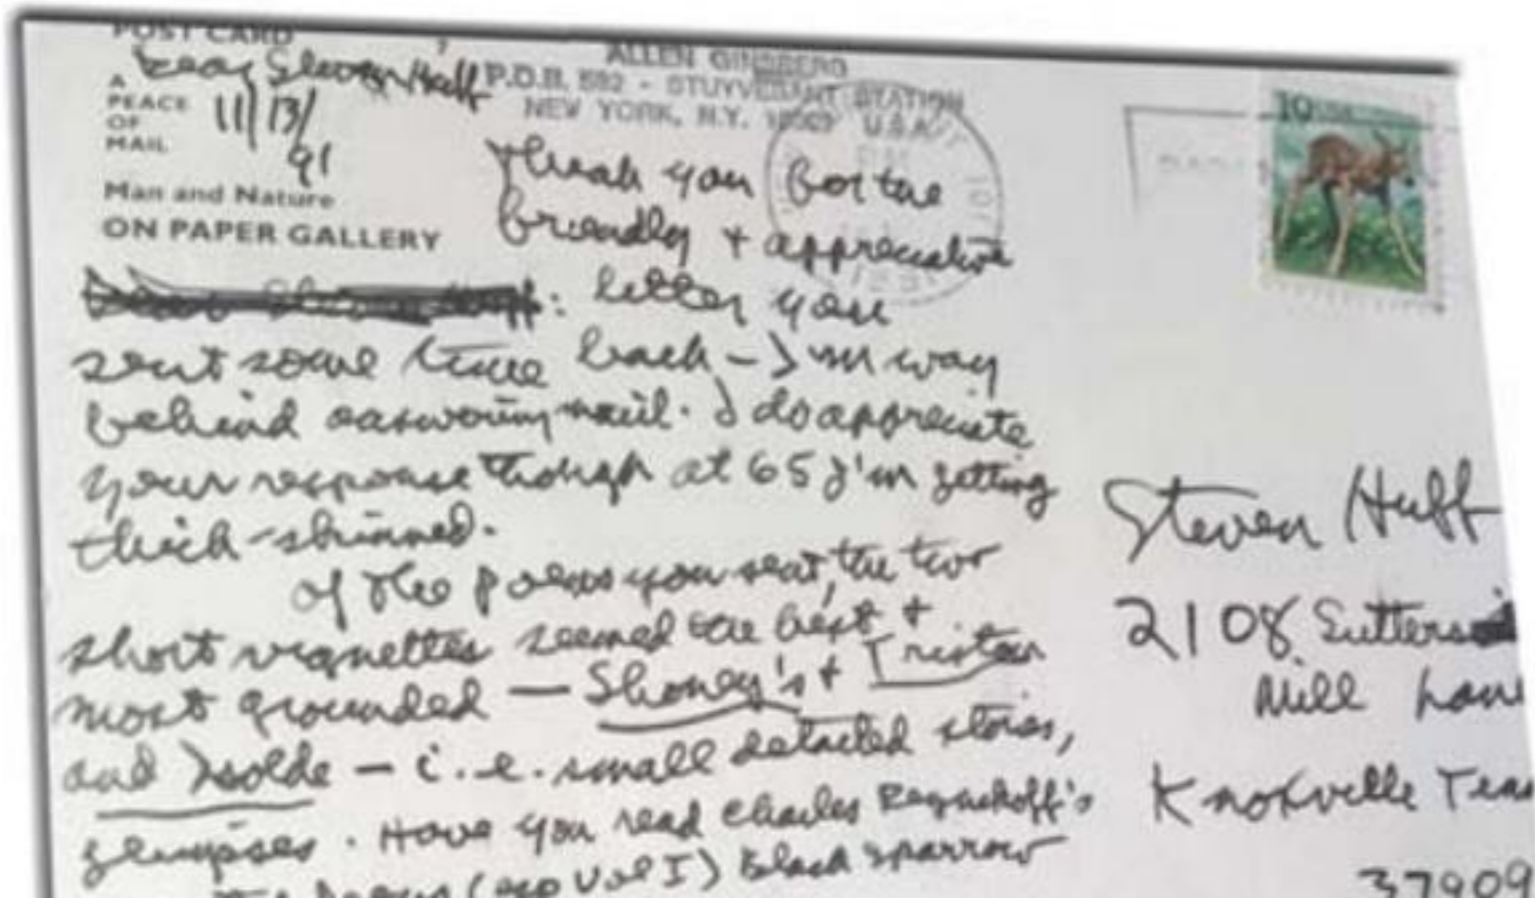 POST CARD
Dear Steven Huff
A
PEACE
OF
MAIL
11/13/
91
Man and Nature
ON PAPER GALLERY
ALLEN GINSBERG
P.O.B. 582 - STUYVESANT STATION
NEW YORK, N.Y. 10009 U.S.A.
Thank you for the
friendly + appreciative
: letter you
sent some time back - I'm way
behind answering mail. I do appreciate
your response though at 65 I'm getting
thick-skinned.
Of the poems you sent, the two
short vignettes seemed the best +
most grounded — Shoney's + Tristan
and Isolde — i.e. small detailed stories,
glimpses. Have you read Charles Reznikoff's
Poems (esp Vol I) Black Sparrow
10 USA
Steven Huff
2108 Sutters
Mill Lane
Knoxville Tenn
37909